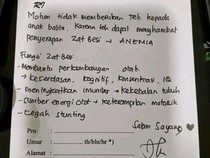 R/
Mohon tidak memberikan Teh kepada
anak balita, karena teh dapat menghambat
penyerapan Zat Besi → ANEMIA
Fungsi Zat Besi
- Membantu perkembangan otak
→ kecerdasan, kognitif, konsentrasi, IQ
- meningkatkan imunitas → kekebalan tubuh
- Sumber energi otot → keterampilan motorik
- Cegah Stunting
Salam Sayang
Pro :
Umur : th/bln/hr *)
Alamat :